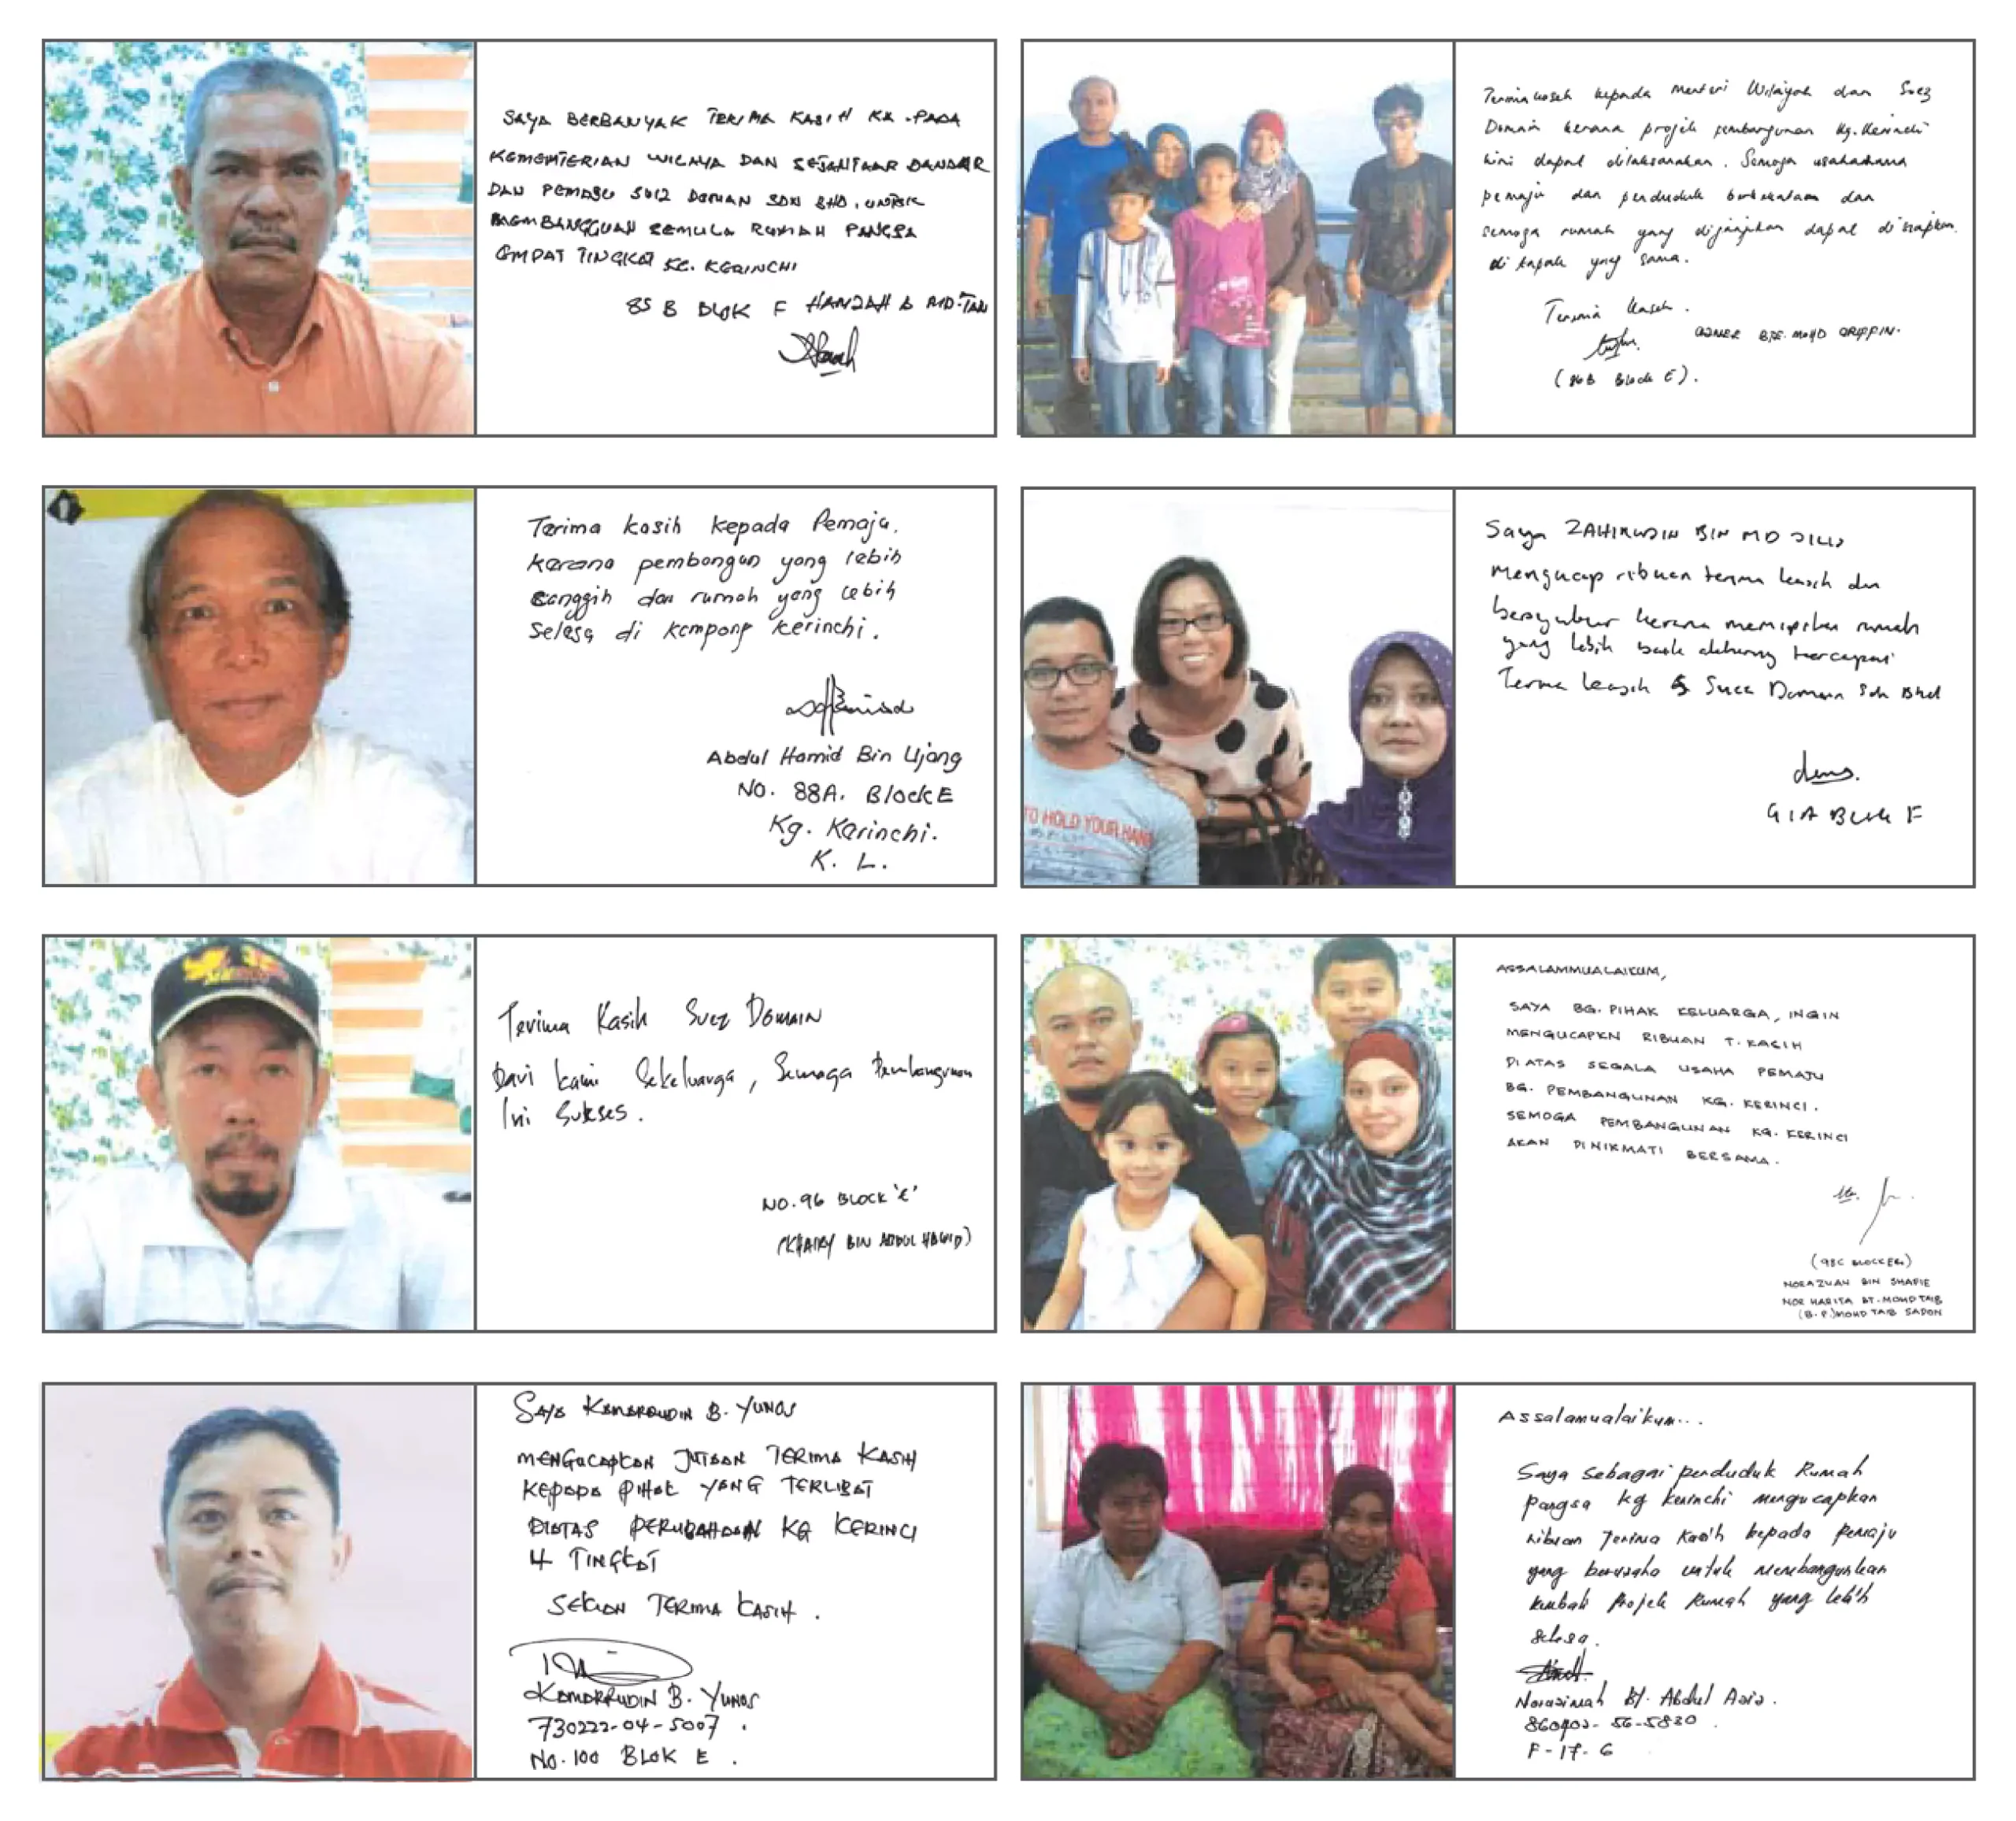 SAYA BERBANYAK TERIMA KASIH KE-PADA
KEMENTERIAN WILAYA DAN BANDAR
DAN PEMAJU SUIZ DOMAN SDN BHD, UNTUK
MEMBANGGUAN SEMULA RUMAH PANGSA
EMPAT TINGKAT KG. KERINCHI
85 B BLOK F HAMZAH B MD.TAN
Terima kaseh kepada Menteri Wilayah dan Suez
Domain kerana projek pembangunan Kg. Kerinchi
kini dapat dilaksanakan. Semoga usahasama
pemaju dan penduduk berkekalan dan
semoga rumah yang dijanjikan dapat disiapkan
di tapak yang sama.
Terima kaseh.
MOHD ARIFFIN.
(86B Block E).
Terima kasih kepada Pemaju.
kerana pembangun yang lebih
canggih dan rumah yang lebih
selesa di kampong kerinchi.
Abdul Hamid Bin Ujang
NO. 88A. Block E
Kg. Karinchi.
K. L.
Saya ZAHIRUDIN BIN MD
mengucap ribuan terima kasih dan
bersyukur kerana memiliki rumah
yang lebih baik tercapai
Terima kasih Suez Domain Sdn Bhd
91A BLOK F
Terima Kasih Suez DOMAIN
Dari kami Sekeluarga, Semoga Pembangunan
Ini Sukses.
NO.96 BLOCK 'E'
(KHAIRY BIN ABDUL HAMID)
ASSALAMMUALAIKUM,
SAYA BG. PIHAK KELUARGA, INGIN
MENGUCAPKN RIBUAN T. KASIH
DI ATAS SEGALA USAHA PEMAJU
BG. PEMBANGUNAN KG. KERINCI.
SEMOGA PEMBANGUNAN KG. KERINCI
AKAN DINIKMATI BERSAMA.
(98C BLOCK E)
NORAZUAN BIN SHAFIE
NOR HARITA BT. MOHD TAIB
(B.P.) MOHD TAIB SADON
TO HOLD YOUR HAND
SAYA KAMARRUDIN B. YUNOS
MENGUCAPKAN JUTAAN TERIMA KASIH
KEPADA PIHAK YANG TERLIBAT
DIATAS PERUBAHAAN KG KERINCI
4 TINGKAT
SEKIAN TERIMA KASIH.
KAMARRUDIN B. YUNOS
730222-04-5007.
NO. 100 BLOK E.
Assalamualaikum...
Saya sebagai penduduk Rumah
pangsa kg kerinchi mengucapkan
ribuan Terima Kasih kepada pemaju
yang berusaha untuk membangunkan
kembali projek Rumah yang lebih
selesa.
Norasimah Bt. Abdul Azis.
F-17-6